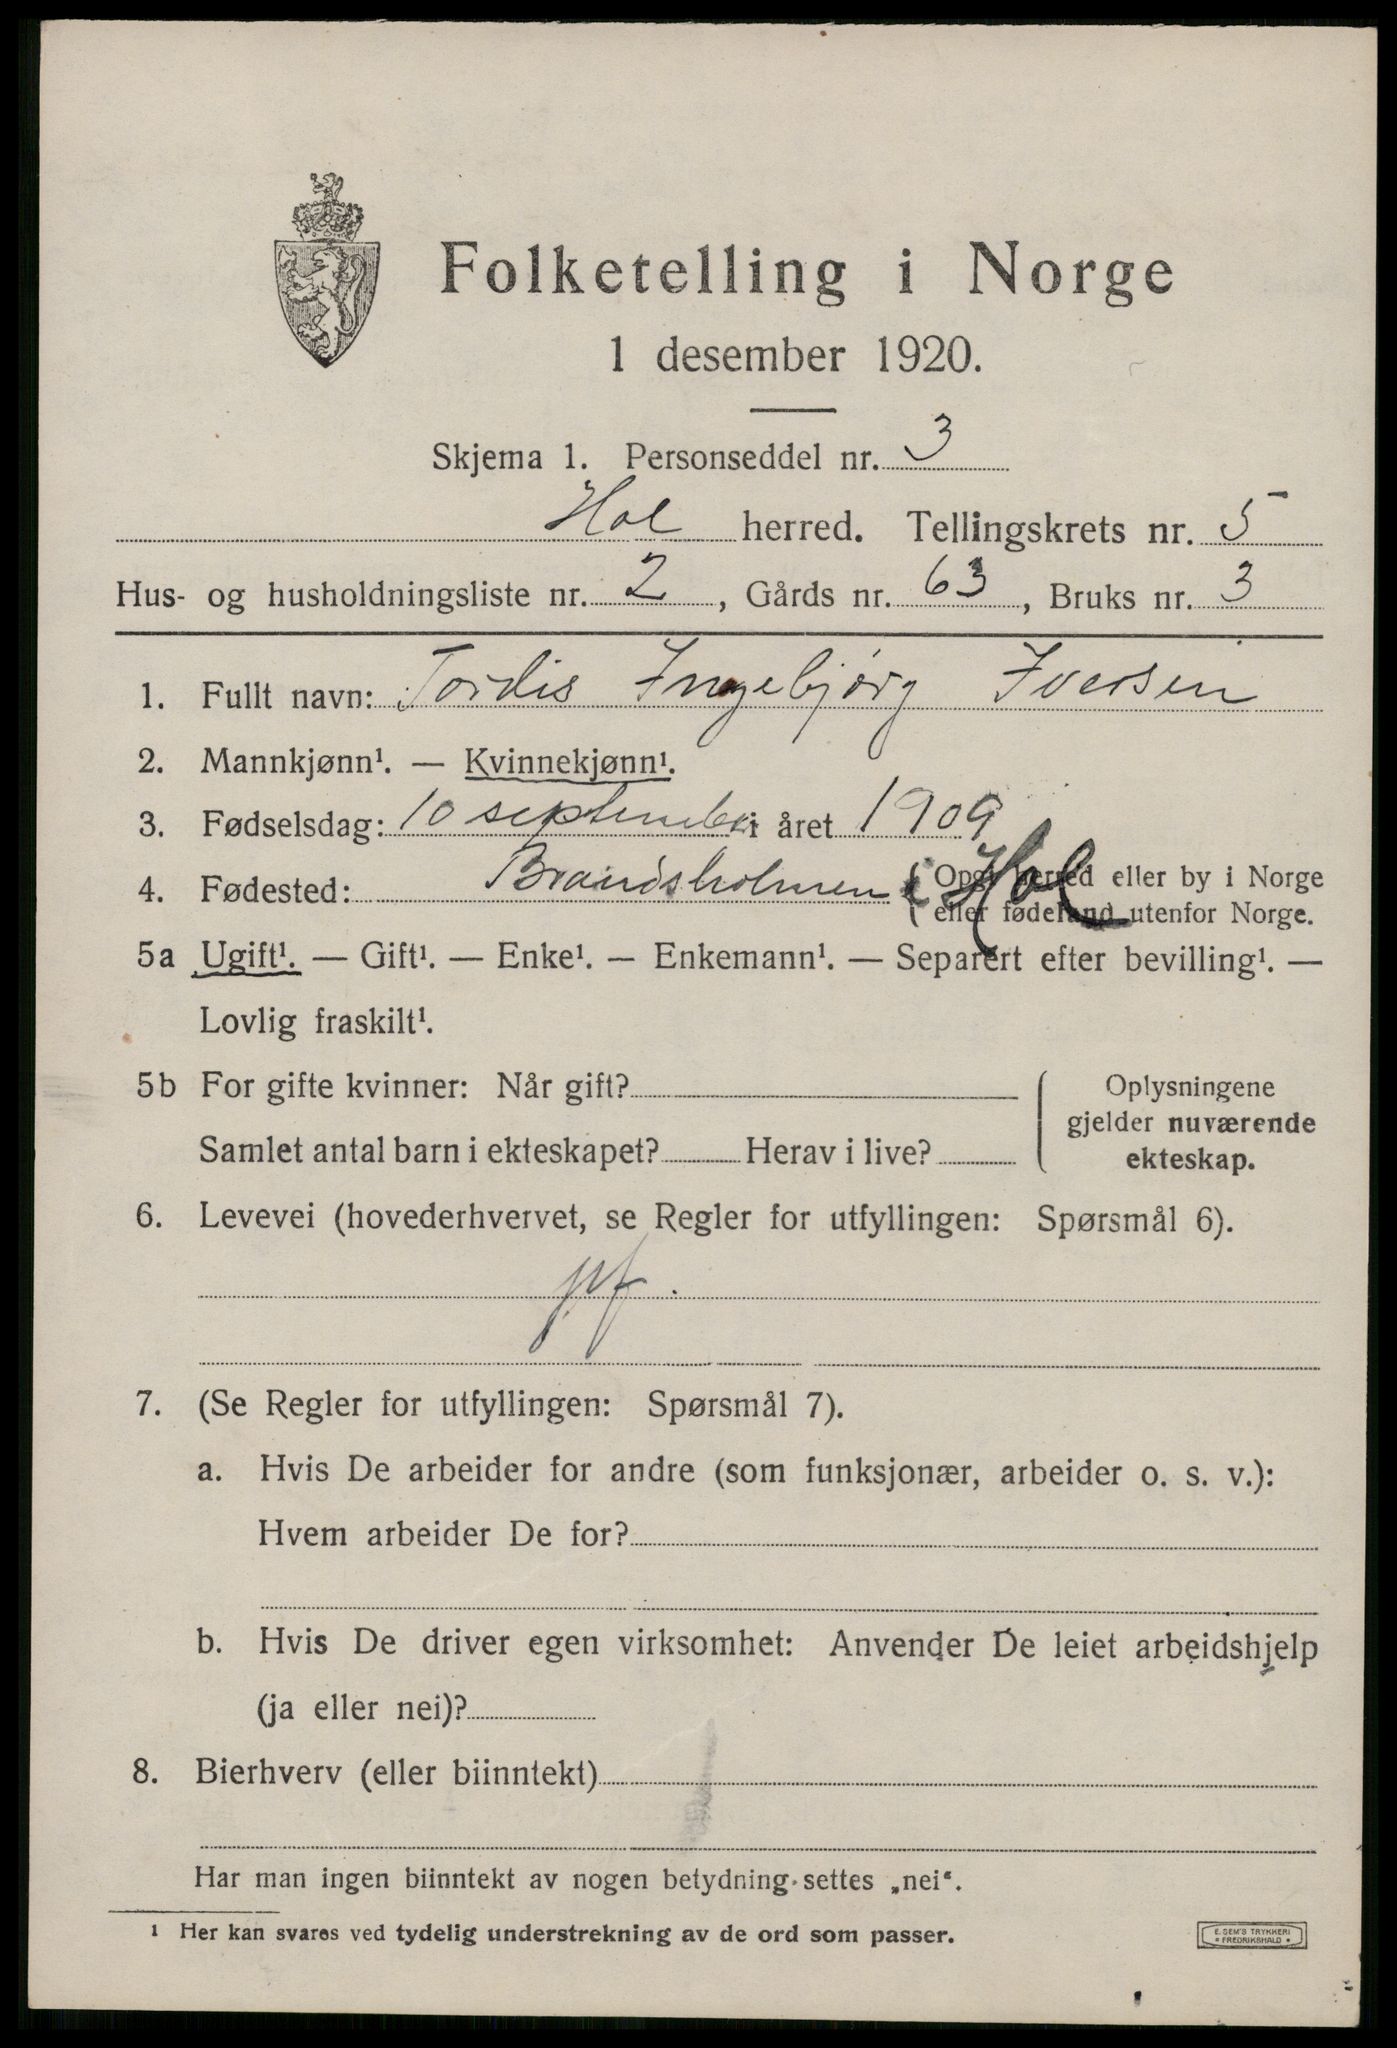 Folketelling i Norge
1 desember 1920.
Skjema 1. Personseddel nr. 3
Hol herred. Tellingskrets nr. 5
Hus- og husholdningsliste nr. 2, Gårds nr. 63, Bruks nr. 3
1. Fullt navn: Tordis Ingebjørg Iversen
2. Mannkjønn¹. — Kvinnekjønn¹.
3. Fødselsdag: 10 september i året 1909
4. Fødested: Brandsholmen i Hol (Opgi herred eller by i Norge
eller fødeland utenfor Norge.
5a Ugift¹. — Gift¹. — Enke¹. — Enkemann¹. — Separert efter bevilling¹. —
Lovlig fraskilt¹.
5b For gifte kvinner: Når gift?
Samlet antal barn i ekteskapet? Herav i live?
Oplysningene
gjelder nuværende
ekteskap.
6. Levevei (hovederhvervet, se Regler for utfyllingen: Spørsmål 6).
7. (Se Regler for utfyllingen: Spørsmål 7).
a. Hvis De arbeider for andre (som funksjonær, arbeider o. s. v.):
Hvem arbeider De for?
b. Hvis De driver egen virksomhet: Anvender De leiet arbeidshjelp
(ja eller nei)?
8. Bierhverv (eller biinntekt)
Har man ingen biinntekt av nogen betydning settes „nei“.
1 Her kan svares ved tydelig understrekning av de ord som passer.
E. SEM'S TRYKKERI
FREDRIKSHALD